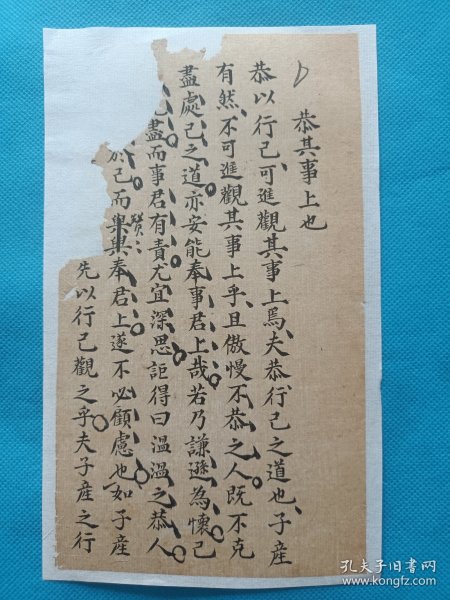 恭其事上也
恭以行己可進觀其事上焉夫恭行己之道也子產
有然不可進觀其事上乎且傲慢不恭之人既不克
盡處己之道亦安能奉事君上哉若乃謙遜為懷己
盡而事君有責尤宜深思詎得曰溫溫之恭人
於己而煢煢奉君上遂不必顧慮也如子產
先以行己觀之乎夫子產之行
孔夫子旧书网
www.kongfz.com